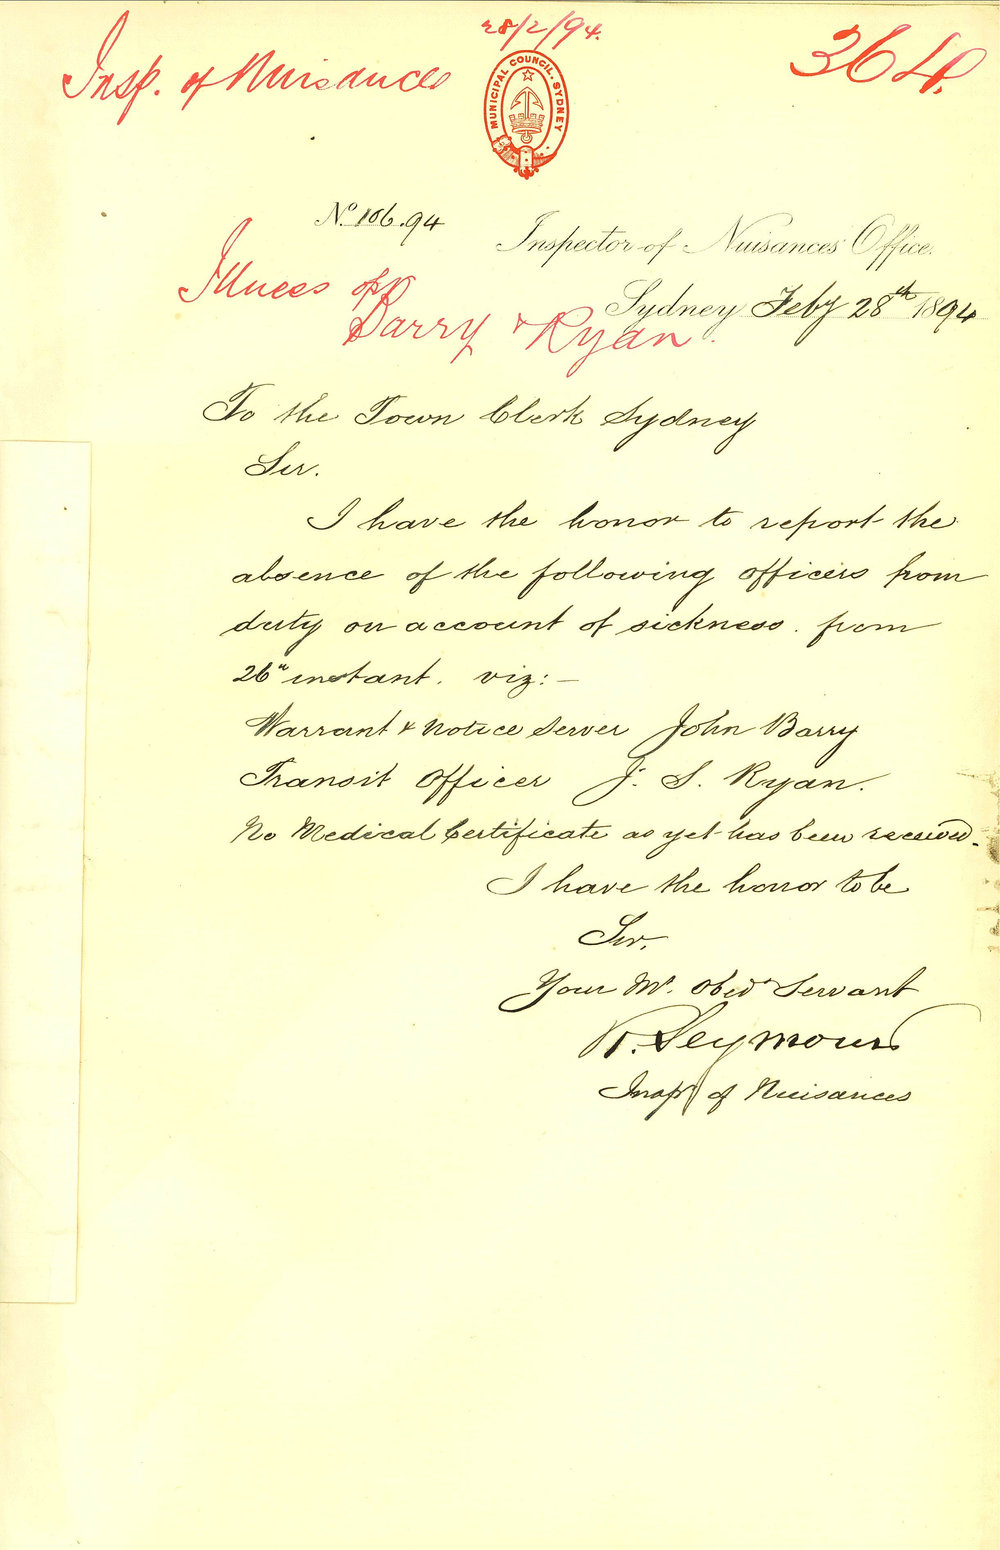 28/2/94.
Insp. of Nuisances
364.
MUNICIPAL COUNCIL. SYDNEY
No. 106.94
Inspector of Nuisances Office.
Illness of
Barry & Ryan.
Sydney Feby 28th 1894
To the Town Clerk Sydney
Sir.
I have the honor to report the
absence of the following officers from
duty on account of sickness. from
26" instant. viz:-
Warrant & Notice Server John Barry
Transit Officer J. S. Ryan.
No Medical Certificate as yet has been received.
I have the honor to be
Sir.
Your Mt. Obedt Servant
R. Seymour
Inspr of Nuisances